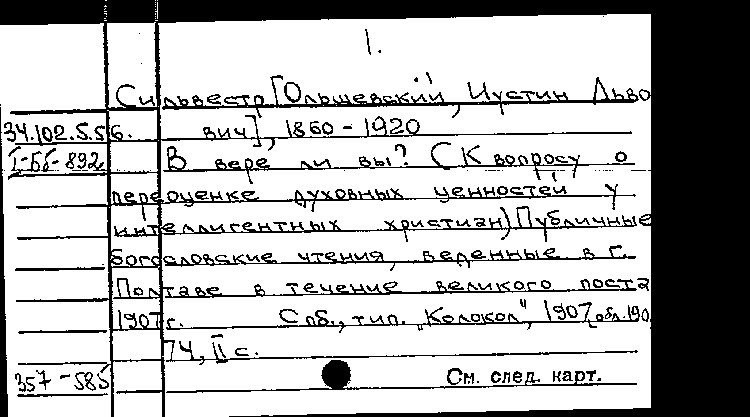 1.
Сильвестр [Ольшевский, Иустин Льво
34.102.5.56. вич], 1860-1920
I-Бб-892 В вере ли вы? (К вопросу о
переоценке духовных ценностей у
интеллигентных христиан) Публичные
богословские чтения, веденные в г.
Полтаве в течение великого поста
1907 г. Спб., тип. „Колокол", 1907 [обл. 190
74, II с.
357-585 См. след. карт.